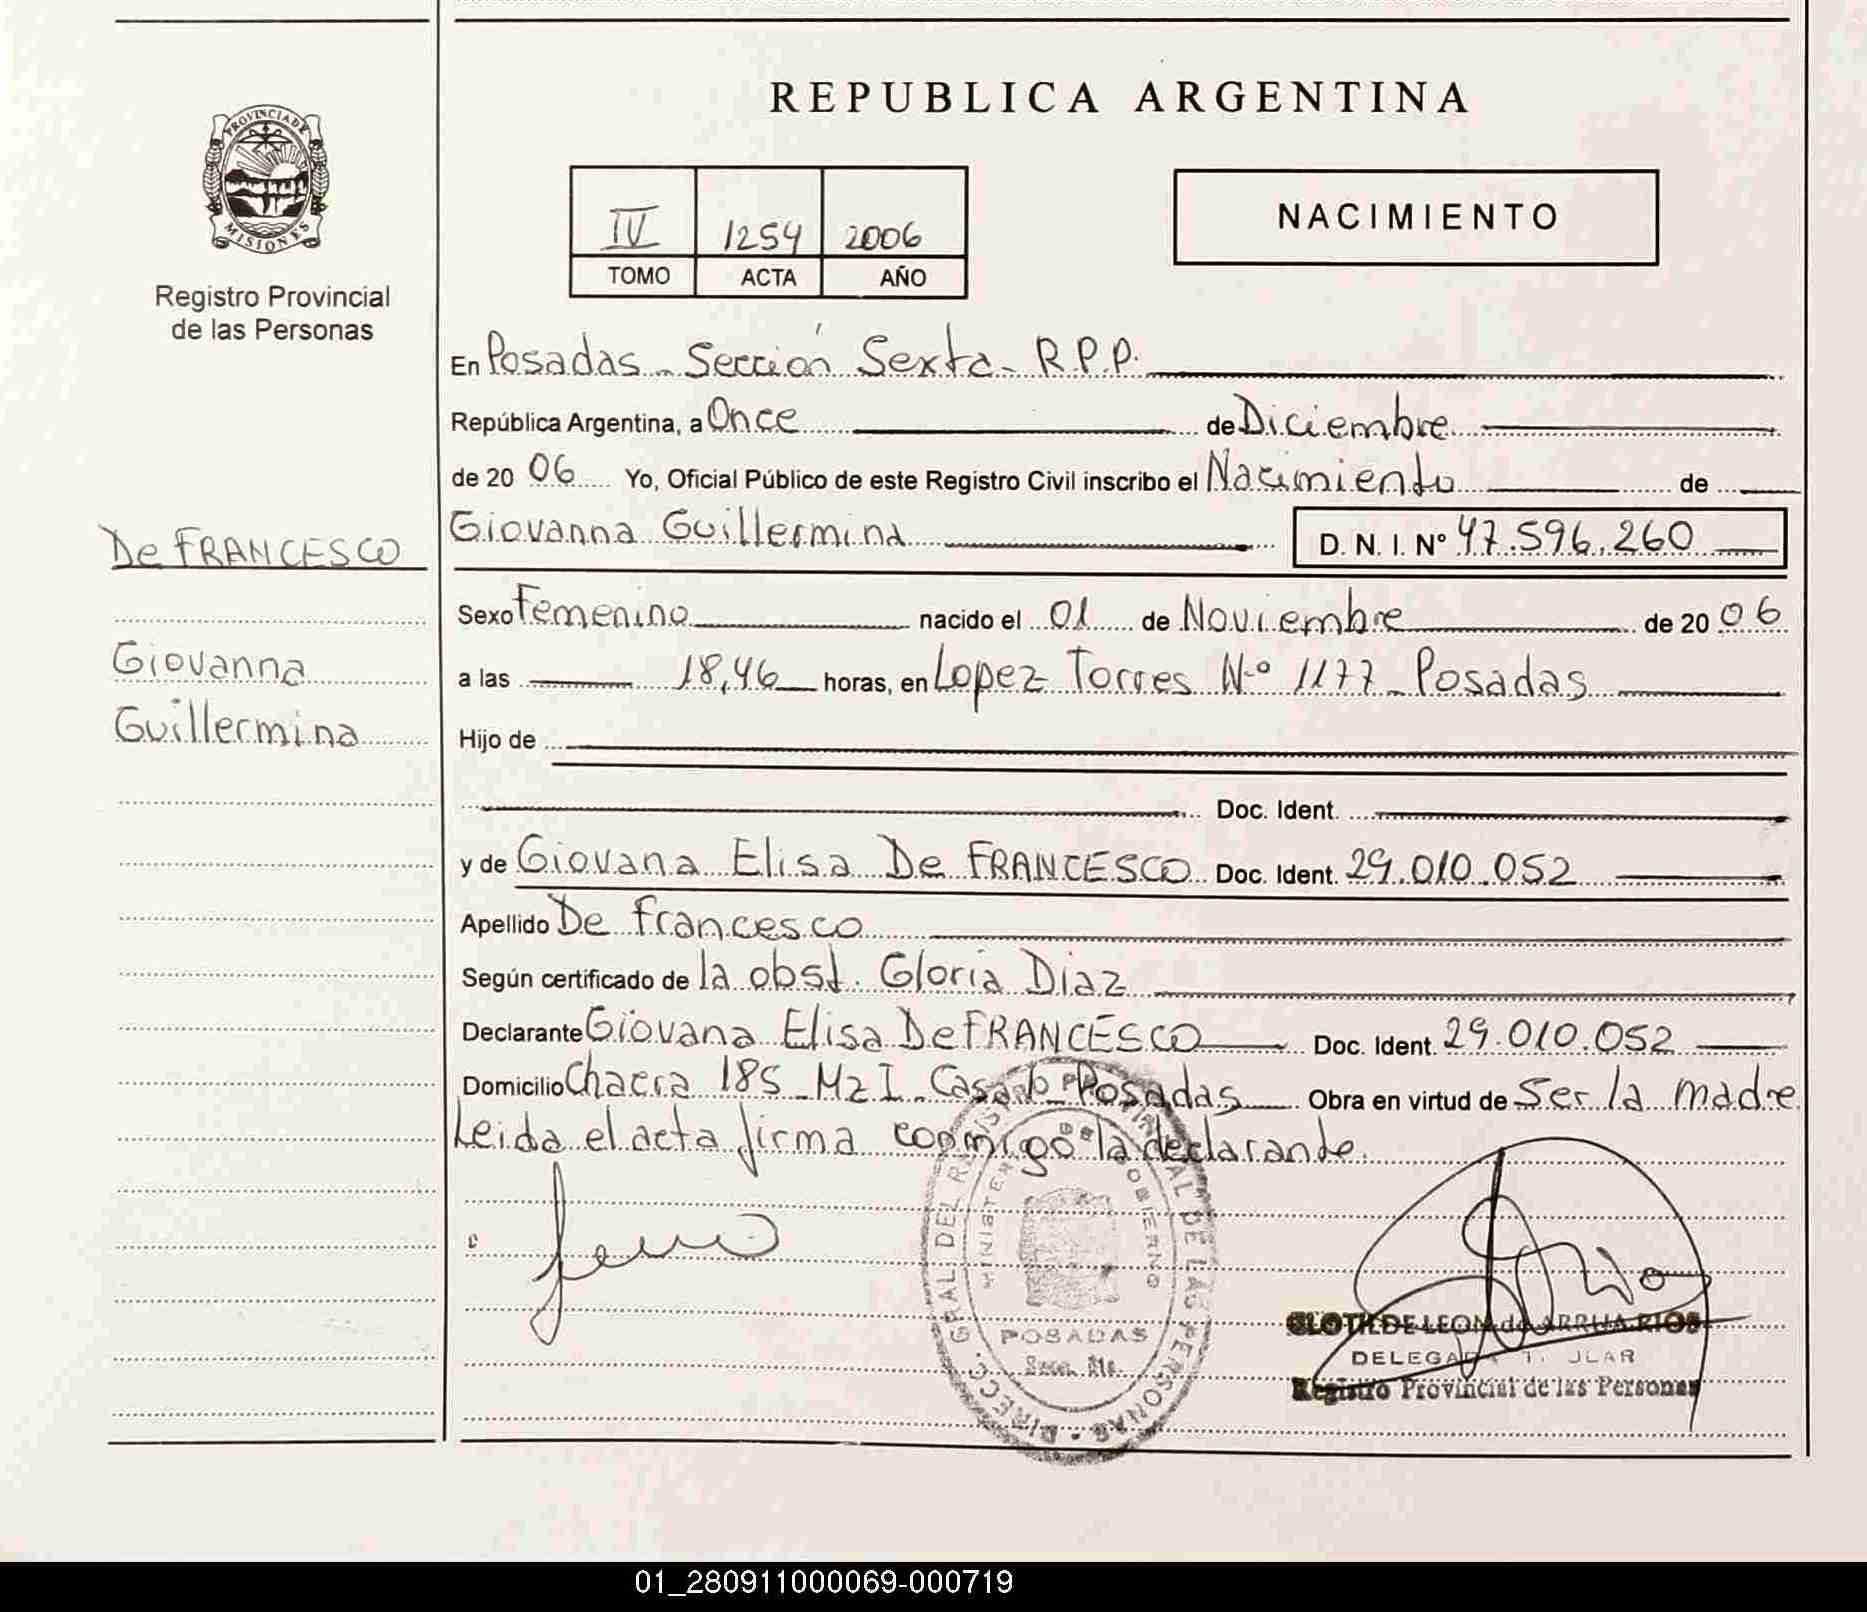 REPUBLICA ARGENTINA
PROVINCIA DE
MISIONES
Registro Provincial
de las Personas
IV 1254 2006
TOMO ACTA AÑO
NACIMIENTO
En Posadas - Sección Sexta - R.P.P.
República Argentina, a Once de Diciembre
de 20 06 Yo, Oficial Público de este Registro Civil inscribo el Nacimiento de
De FRANCESCO
Giovanna Guillermina D. N. I. Nº 47.596.260
Sexo Femenino nacido el 01 de Noviembre de 20 06
Giovanna
a las 18,46 horas, en Lopez Torres Nº 1177 - Posadas
Guillermina
Hijo de
Doc. Ident.
y de Giovana Elisa De FRANCESCO Doc. Ident. 29.010.052
Apellido De Francesco
Según certificado de la obst. Gloria Diaz
Declarante Giovana Elisa De FRANCESCO Doc. Ident. 29.010.052
Domicilio Chacra 185 - Mz I - Casa Posadas Obra en virtud de Ser la madre
Leida el acta firma conmigo la declarante.
DIRECC. GRAL. DEL REGISTRO PROVINCIAL DE LAS PERSONAS
MINISTERIO DE GOBIERNO
POSADAS
CLOTILDE LEON de ARRUA RIOS
DELEGADA
Registro Provincial de las Personas
01_280911000069-000719